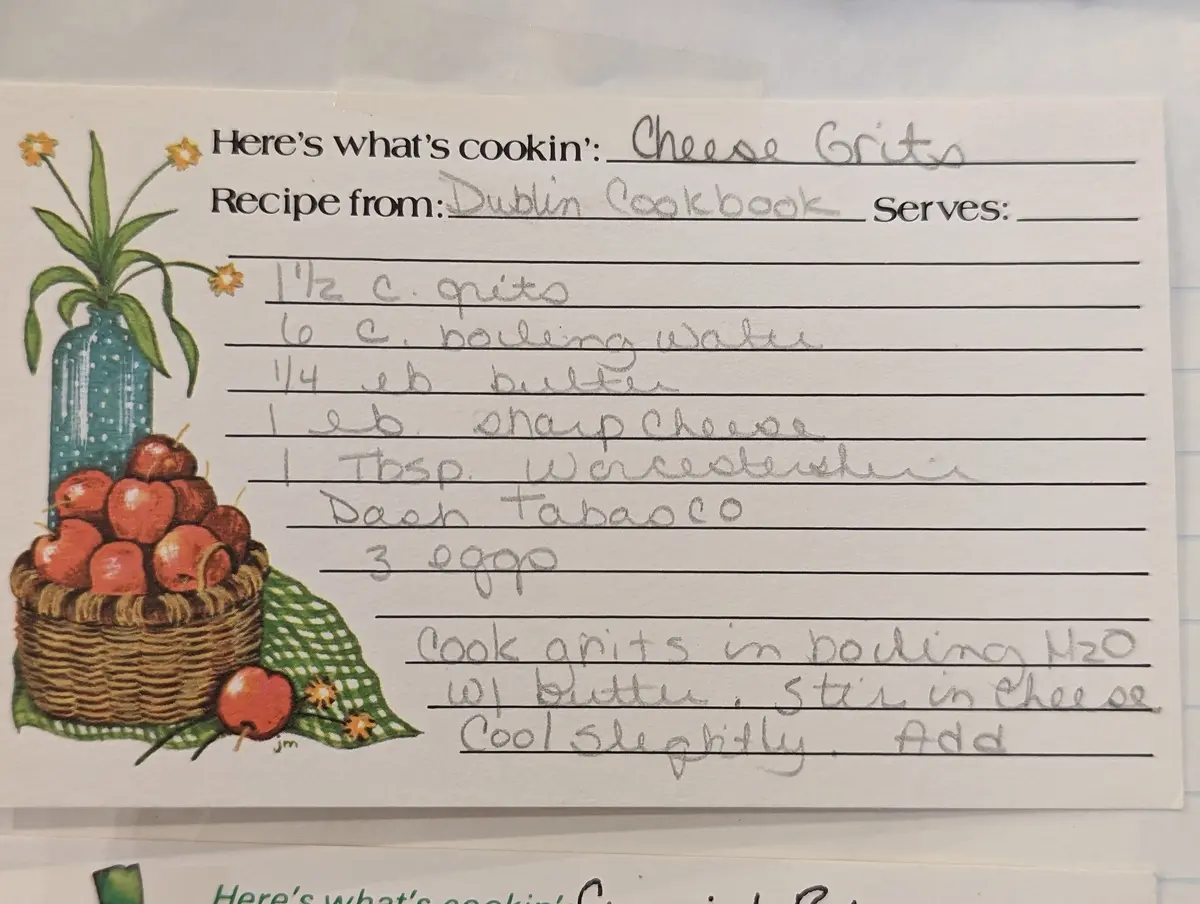 Here's what's cookin': Cheese Grits
Recipe from: Dublin Cookbook Serves:
1 1/2 c. grits
6 c. boiling water
1/4 lb butter
1 lb sharp cheese
1 Tbsp. Worcestershire
Dash Tabasco
3 eggs
Cook grits in boiling H2O
w/ butter. Stir in cheese
Cool slightly. Add
jm
Here's what's cookin'